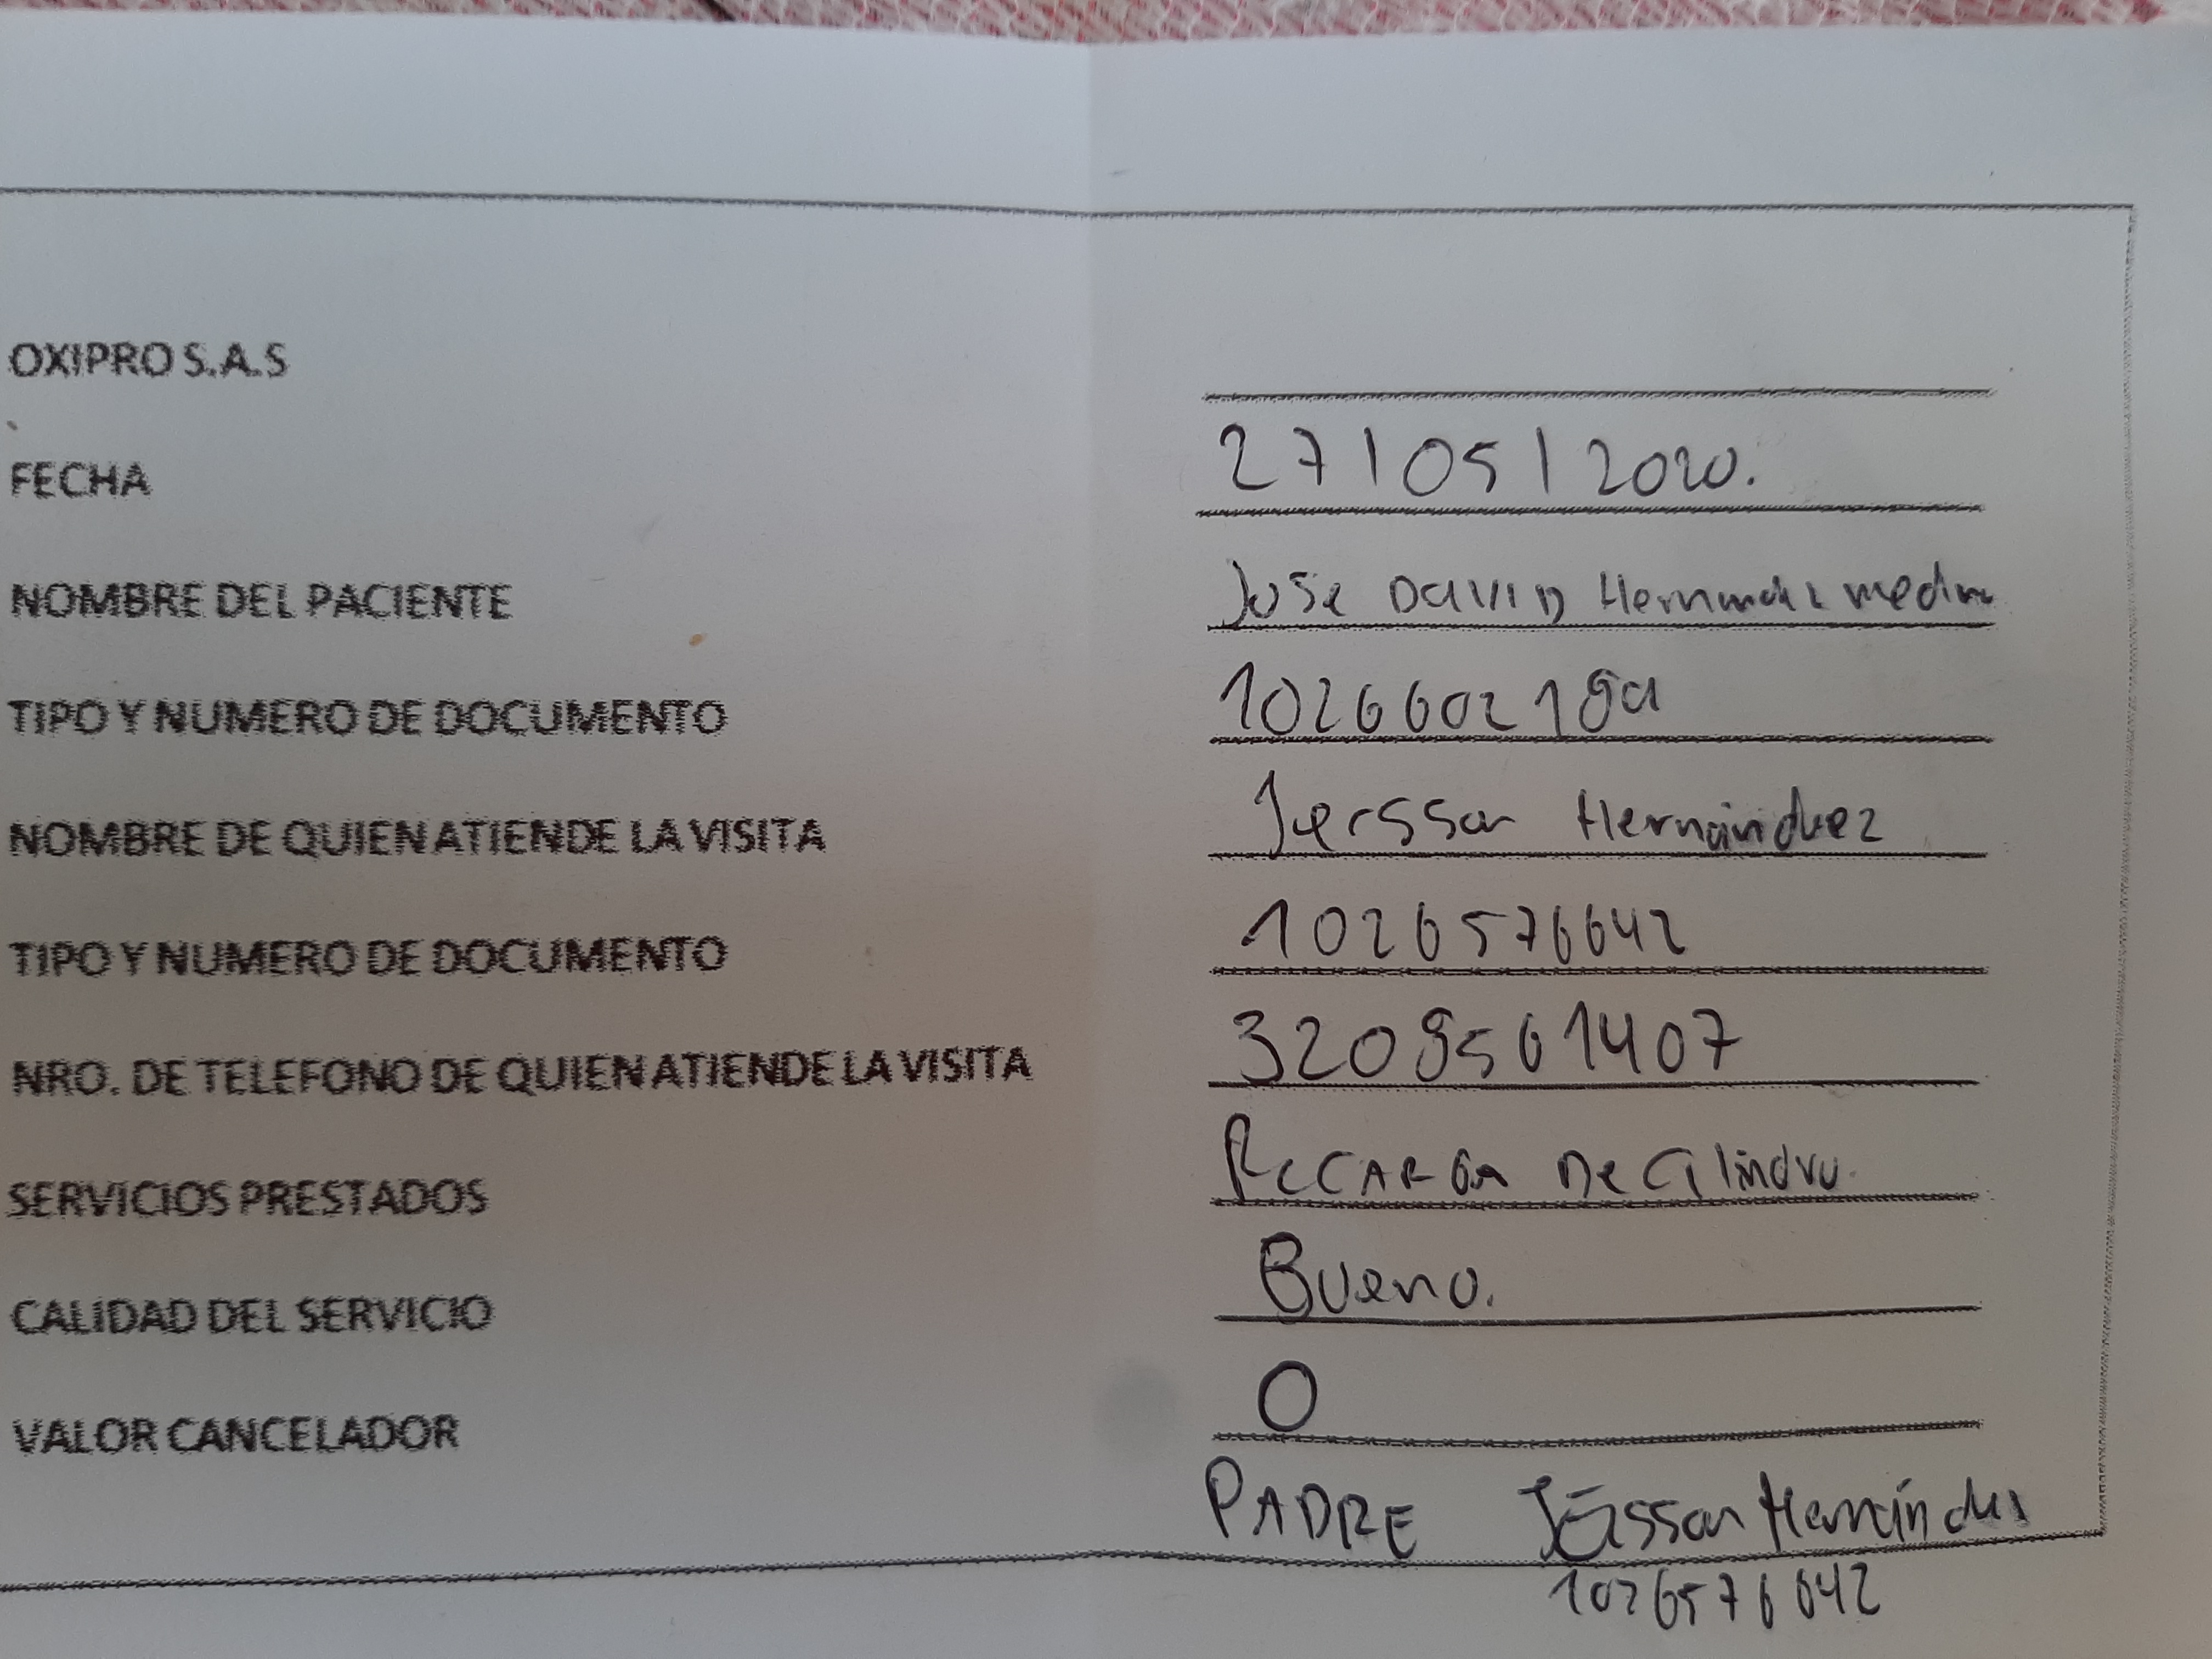 OXIPRO S.A.S
FECHA 27/05/2020.
NOMBRE DEL PACIENTE Jose DAVID Hernandez medina
TIPO Y NUMERO DE DOCUMENTO
NOMBRE DE QUIEN ATIENDE LA VISITA Jersson Hernández
TIPO Y NUMERO DE DOCUMENTO 1026576642
NRO. DE TELEFONO DE QUIEN ATIENDE LA VISITA
SERVICIOS PRESTADOS RECARGA De Cilindro.
CALIDAD DEL SERVICIO Bueno.
VALOR CANCELADOR 0
PADRE Jersson Hernández
1026576642